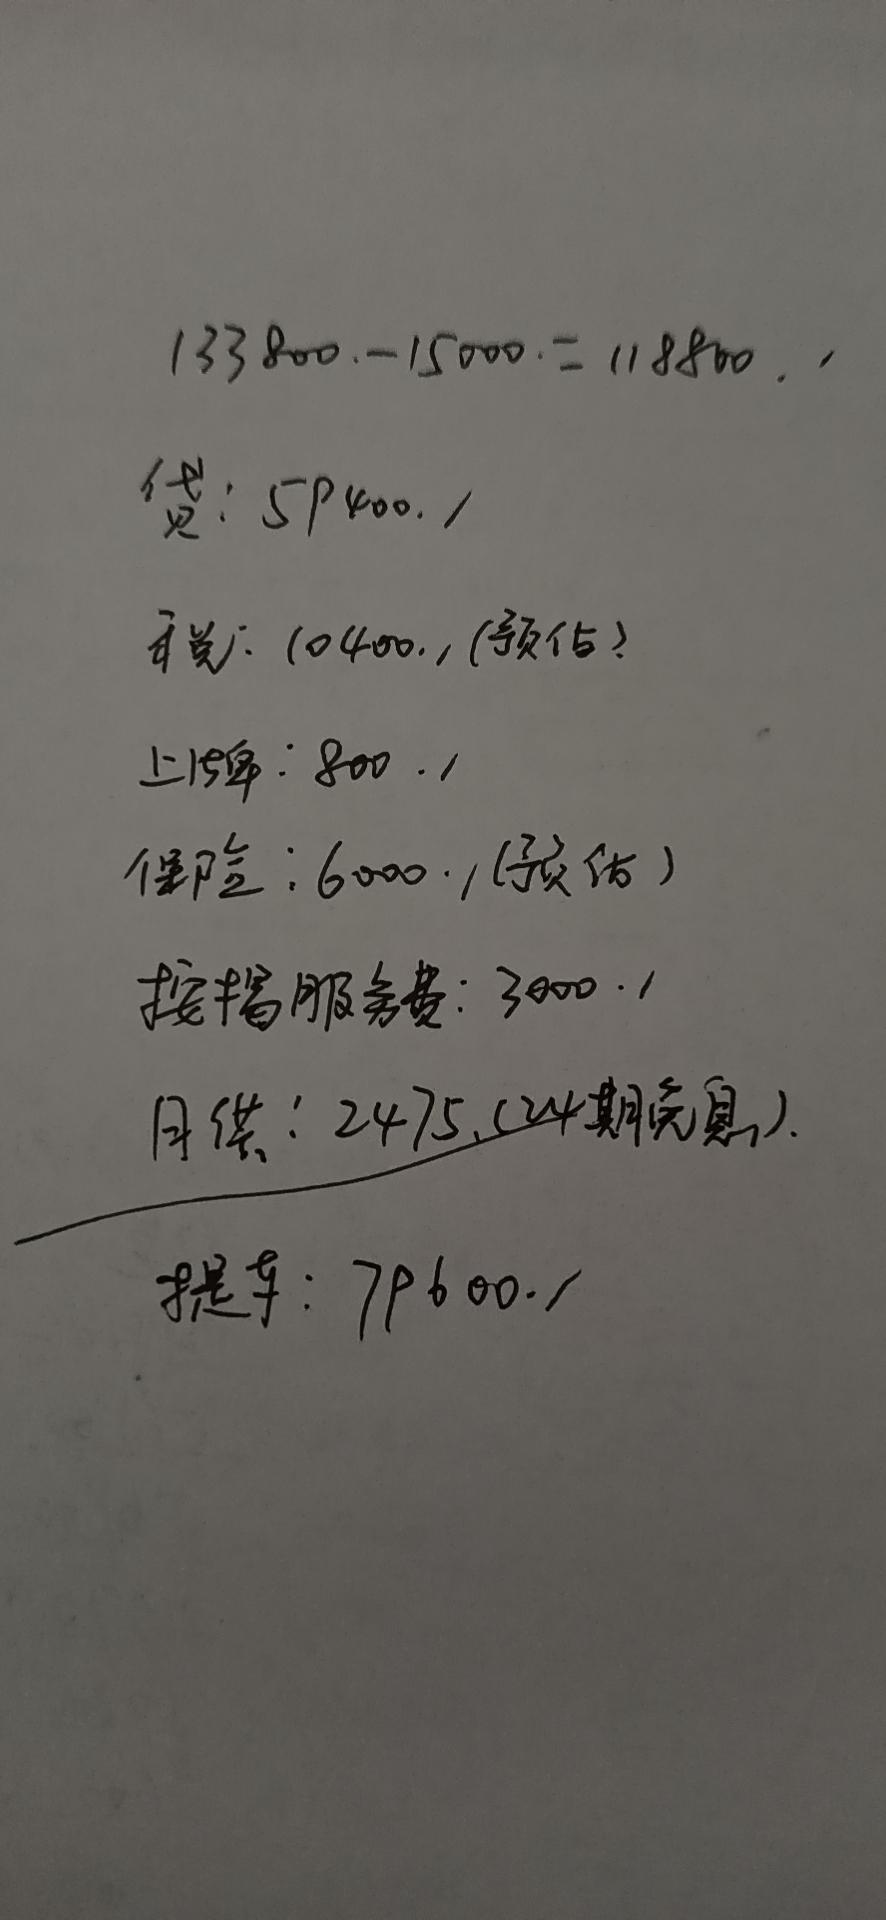 133800.-15000.=118800.
贷:59400.
税:10400.(预估)
上牌:800.
保险:6000.(预估)
按揭服务费:3000.
月供:2475.(24期免息).
提车:79600.